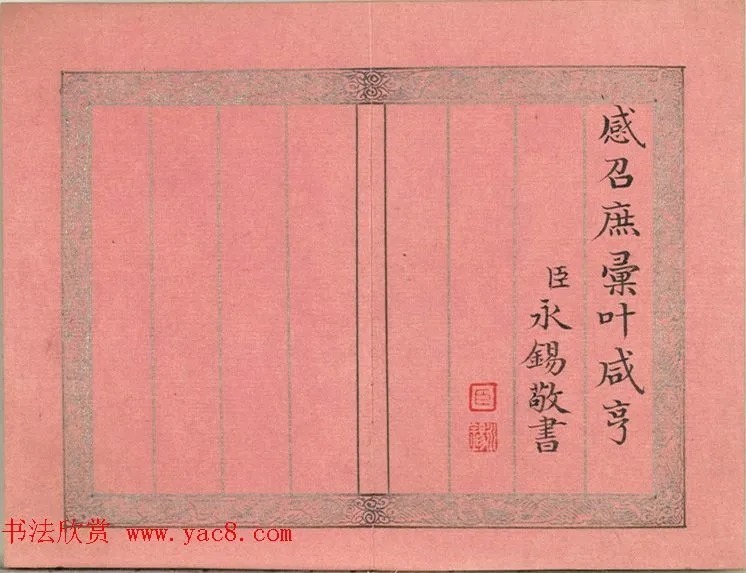 感召庶彙叶咸亨
臣永錫敬書
臣
书法欣赏 www.yac8.com